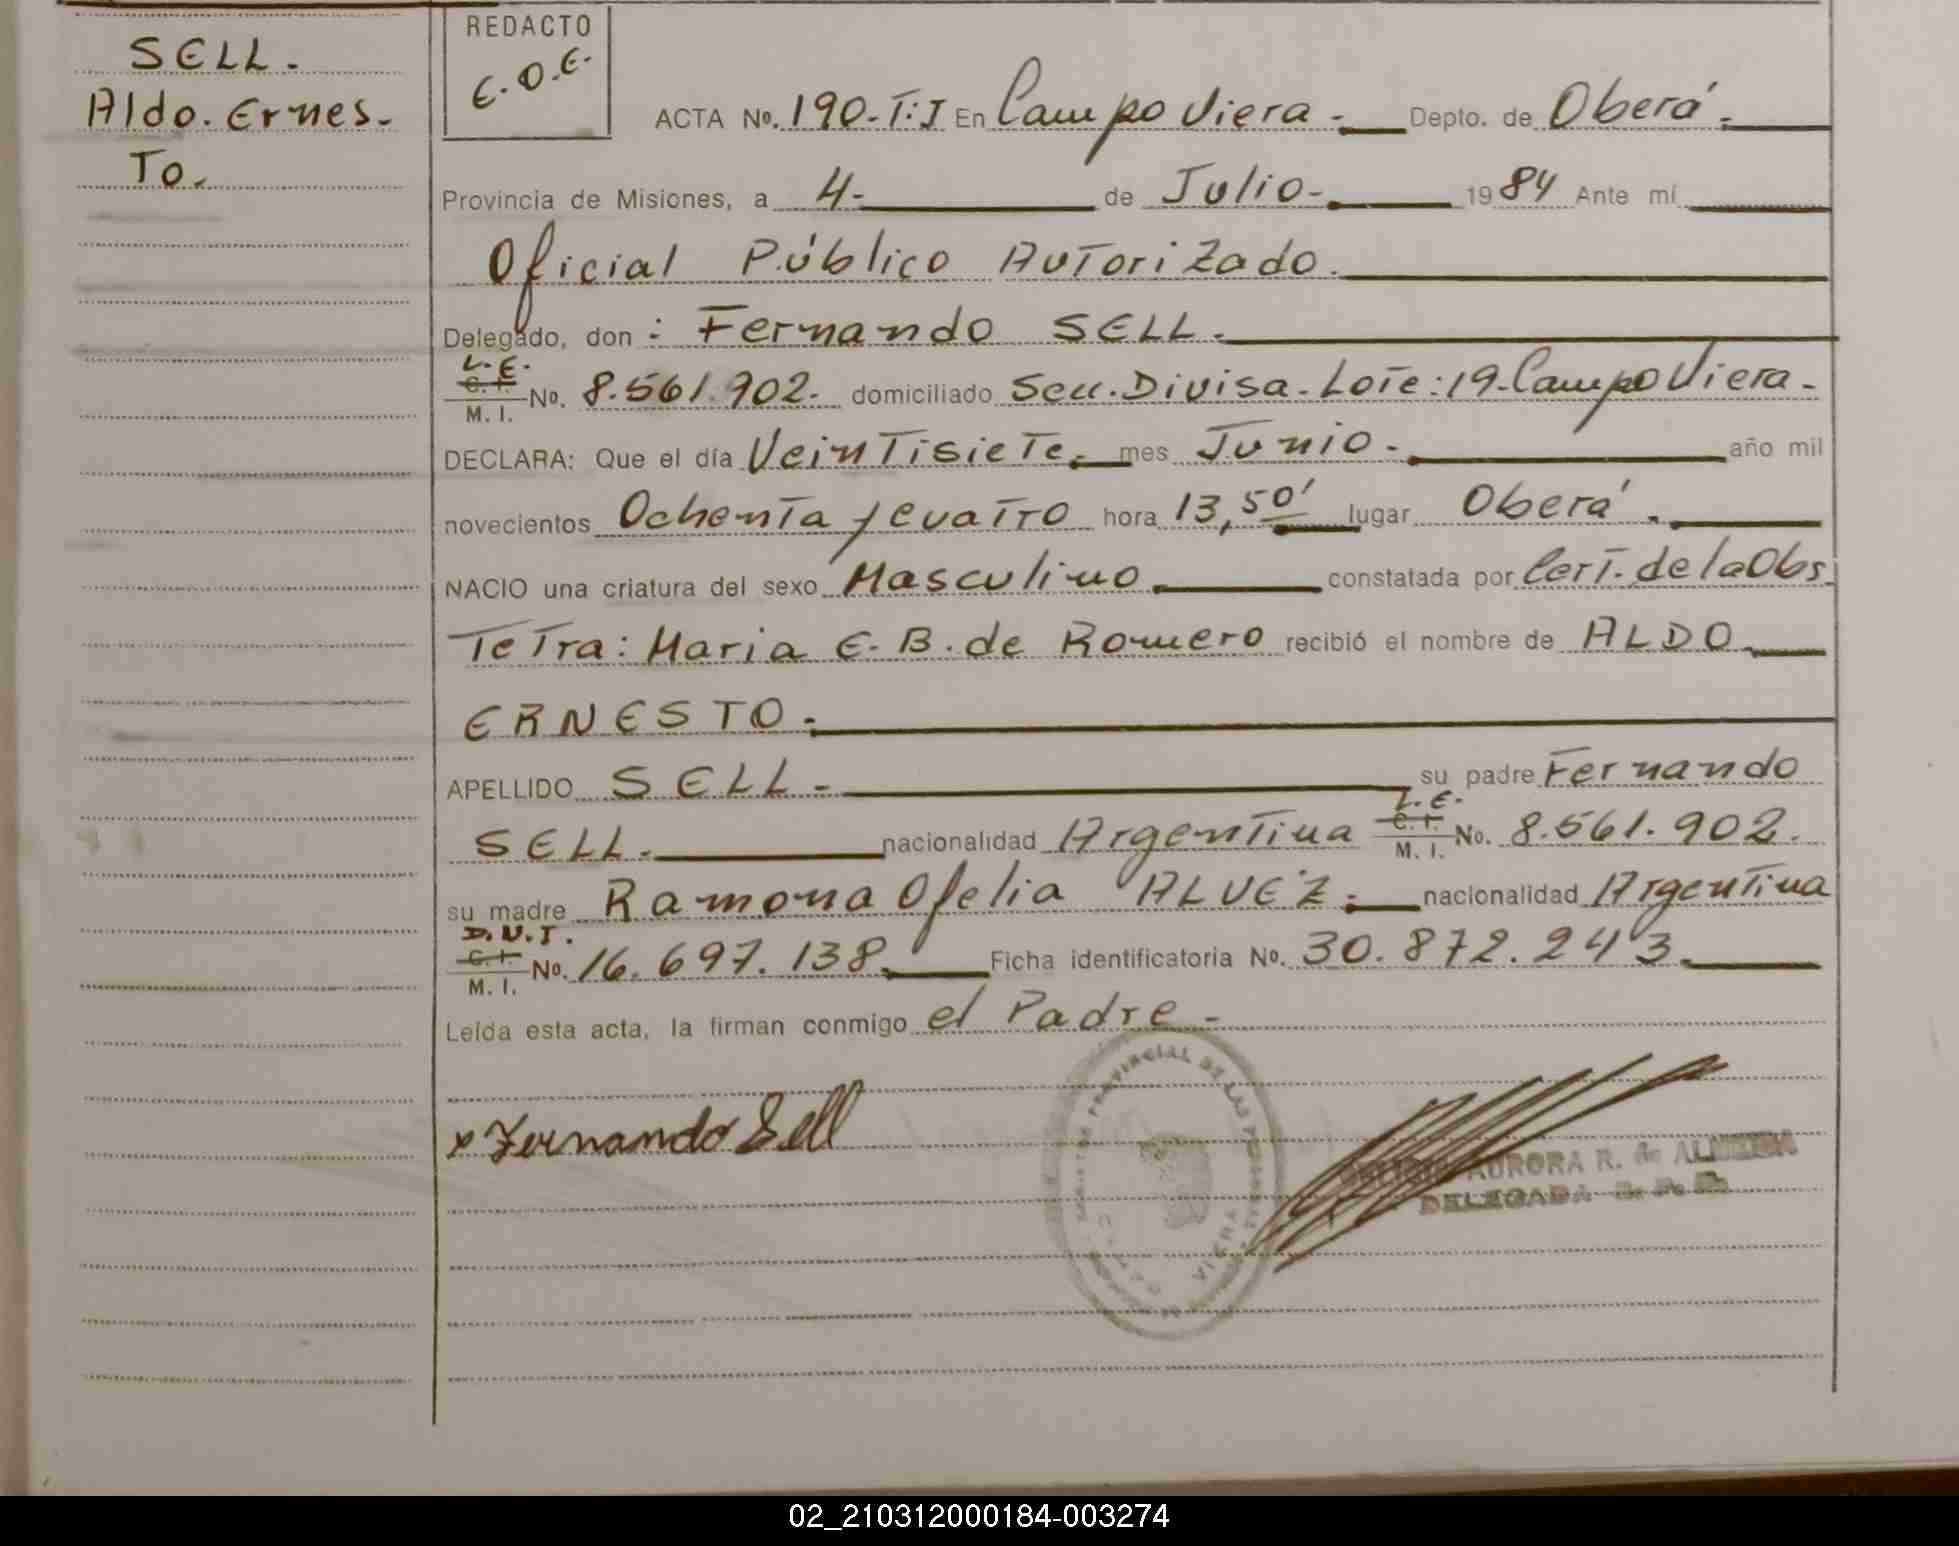 SELL.
Aldo. Ernes-
To.
REDACTO
E.O.E.
ACTA Nº. 190-T:I En Campo Viera.- Depto. de Oberá.
Provincia de Misiones, a 4- de Julio- 1984 Ante mí
Oficial Público Autorizado.
Delegado, don: Fernando SELL.
L.E.
C.I.
M. I. No. 8.561.902. domiciliado Secc. Divisa. Lote: 19-Campo Viera-
DECLARA: Que el día Veintisiete. mes Junio. año mil
novecientos Ochenta y cuatro hora 13,50' lugar Oberá.
NACIO una criatura del sexo Masculino. constatada por Cert. de la Obs
Tetra: Maria E. B. de Romero recibió el nombre de ALDO
ERNESTO.
APELLIDO SELL- su padre Fernando
SELL. nacionalidad Argentina L.E. C.I. M. I. No. 8.561.902.
su madre Ramona Ofelia ALVEZ. nacionalidad Argentina
D.N.I.
C.I.
M. I. No. 16.697.138 Ficha identificatoria Nº. 30.872.243
Leída esta acta, la firman conmigo el Padre-
x Fernando Sell
PROVINCIAL DE LAS
VIERA
AURORA R. de ALMEIDA
DELEGADA
02_210312000184-003274